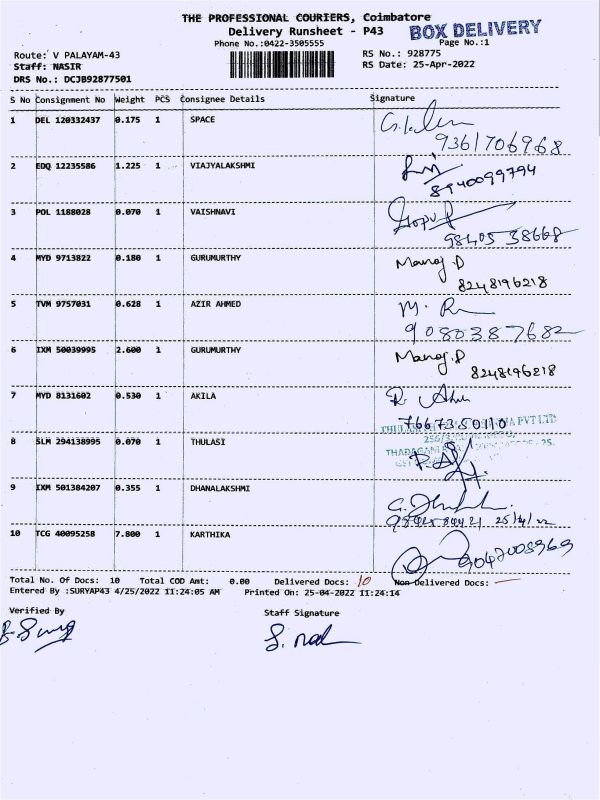 THE PROFESSIONAL COURIERS, Coimbatore
Delivery Runsheet - P43
BOX DELIVERY
Phone No.:0422-3505555
Page No.:1
Route: V PALAYAM-43
RS No.: 928775
Staff: NASIR
RS Date: 25-Apr-2022
DRS No.: DCJB92877501
S No Consignment No Weight PCS Consignee Details Signature
1 DEL 120332437 0.175 1 SPACE
9361706968
2 EDQ 12235586 1.225 1 VIAJYALAKSHMI
8940099794
3 POL 1188028 0.070 1 VAISHNAVI
Gopu
98405 38668
4 MYD 9713822 0.180 1 GURUMURTHY Manoj.D
8248196218
5 TVM 9757031 0.628 1 AZIR AHMED
9080387682
6 IXM 50039995 2.600 1 GURUMURTHY Manoj.D
8248196218
7 MYD 8131602 0.530 1 AKILA
7667350110
PVT LTD
8 SLM 294138995 0.070 1 THULASI
9 IXM 501384207 0.355 1 DHANALAKSHMI
25/4/22
10 TCG 40095258 7.800 1 KARTHIKA
9047008969
Total No. Of Docs: 10 Total COD Amt: 0.00 Delivered Docs: 10 Non-Delivered Docs: —
Entered By :SURYAP43 4/25/2022 11:24:05 AM Printed On: 25-04-2022 11:24:14
Verified By Staff Signature